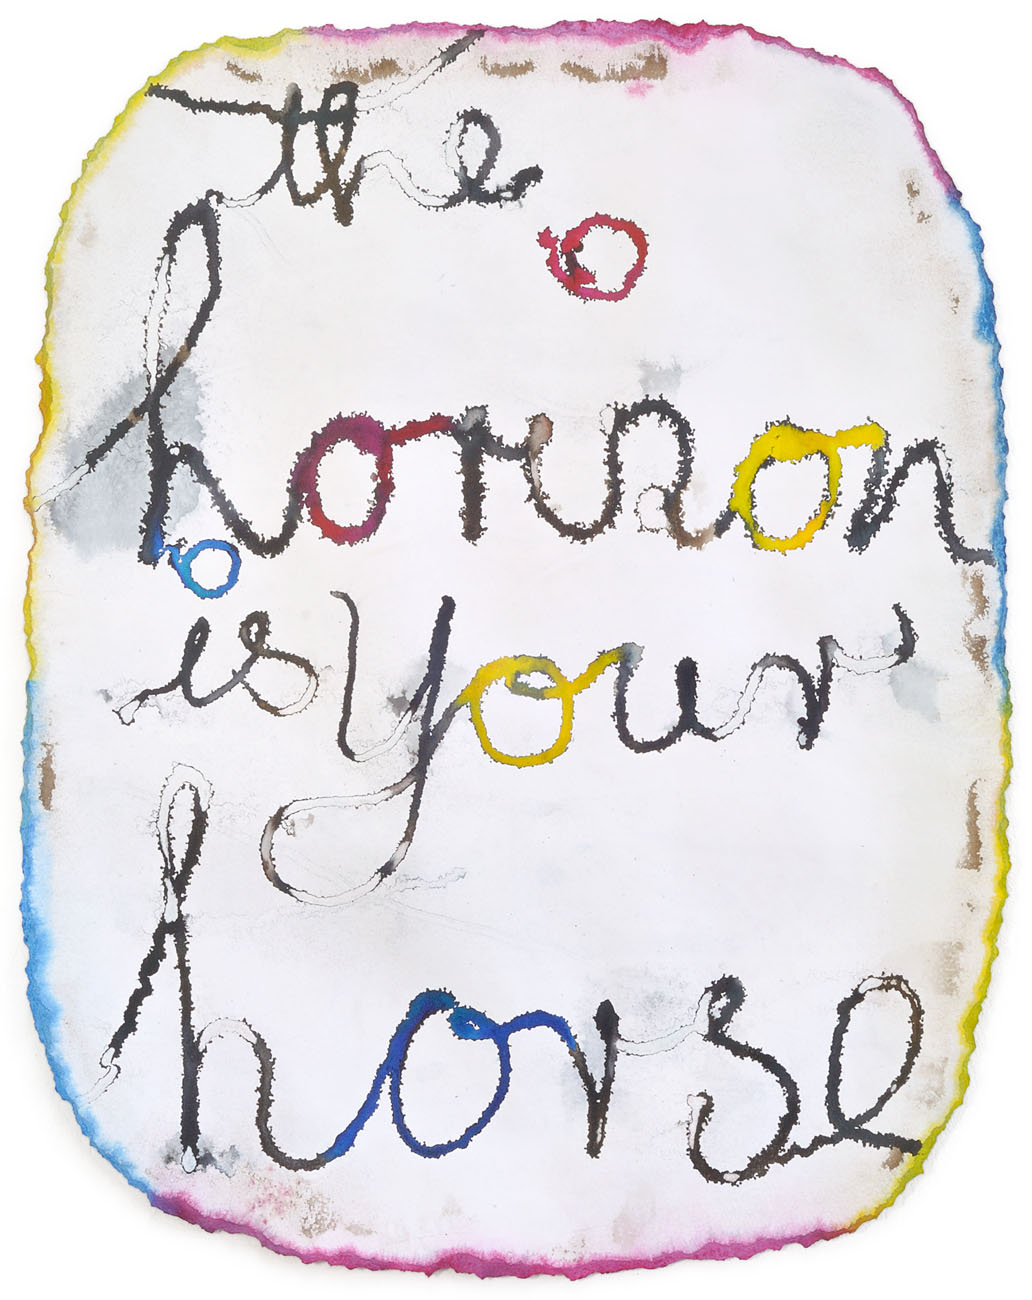 the
horizon
is your
horse